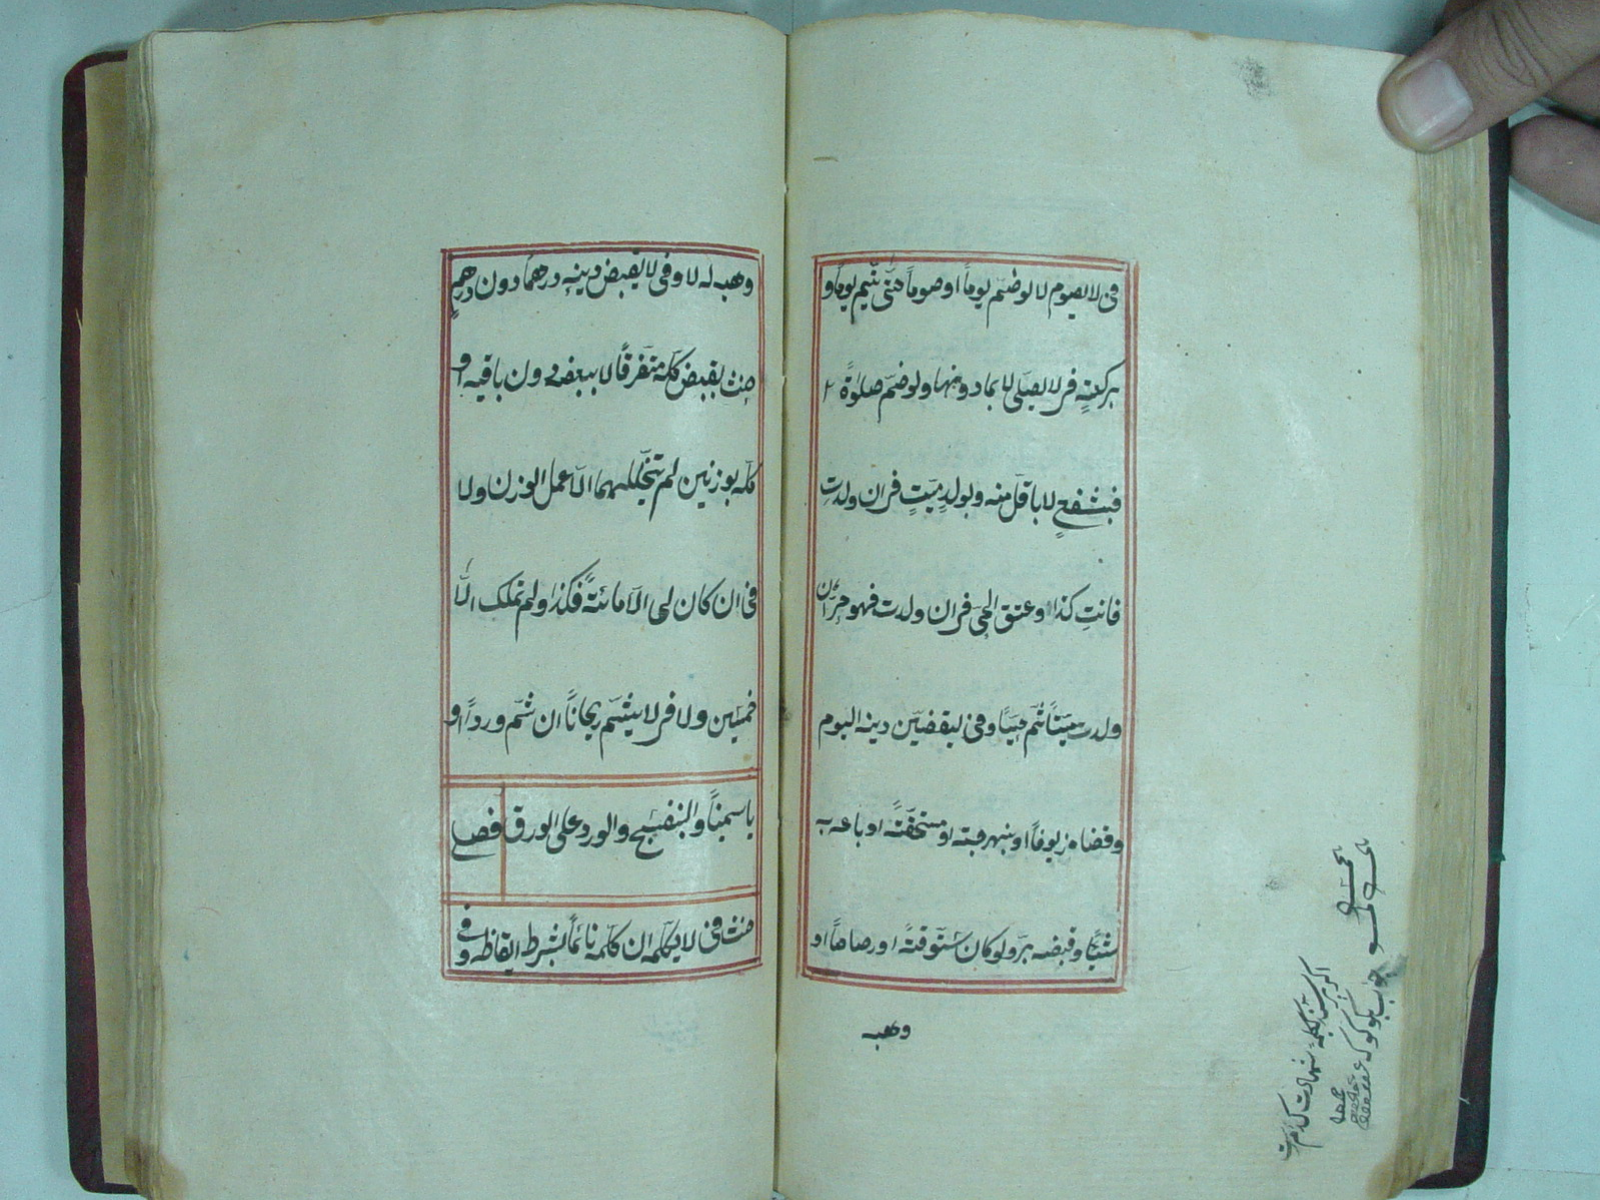 فى لا يصوم لا لو ضم يوماً او صوماً حتى يتم يوماً و
بركعةٍ فى لا يصلى لا بما دونها ولو ضم صلوةً
فبشفعٍ لا باقل منه وبولدٍ ميتٍ فى ان ولدتِ
فانتِ كذا وعتق الحى فى ان ولدت فهو حرٌ ان
ولدت ميتاً ثم حياً وفى ليقضين دينه اليوم
وقضاه زيوفاً او بنهرجته او مستحقةً او باعه به
شيئاً وقبضه بر ولو كان ستوقةً او رصاصاً او
وهبه
وهبه له لا وفى لا يقبض دينه درهماً دون درهمٍ
حنث بقبض كله متفرقاً لا ببعضه دون باقيه او
كله بوزنين لم يتخللهما الا عمل الوزن ولا
فى ان كان لى الا مائةً فكذا ولم تملك الا
خمسين ولا فى لا يشم ريحاناً ان شم ورداً او
ياسميناً والبنفسج والورد على الورق فصل
حنث فى لا يكلمه ان كلمه نائماً بشرط ايقاظه وفى